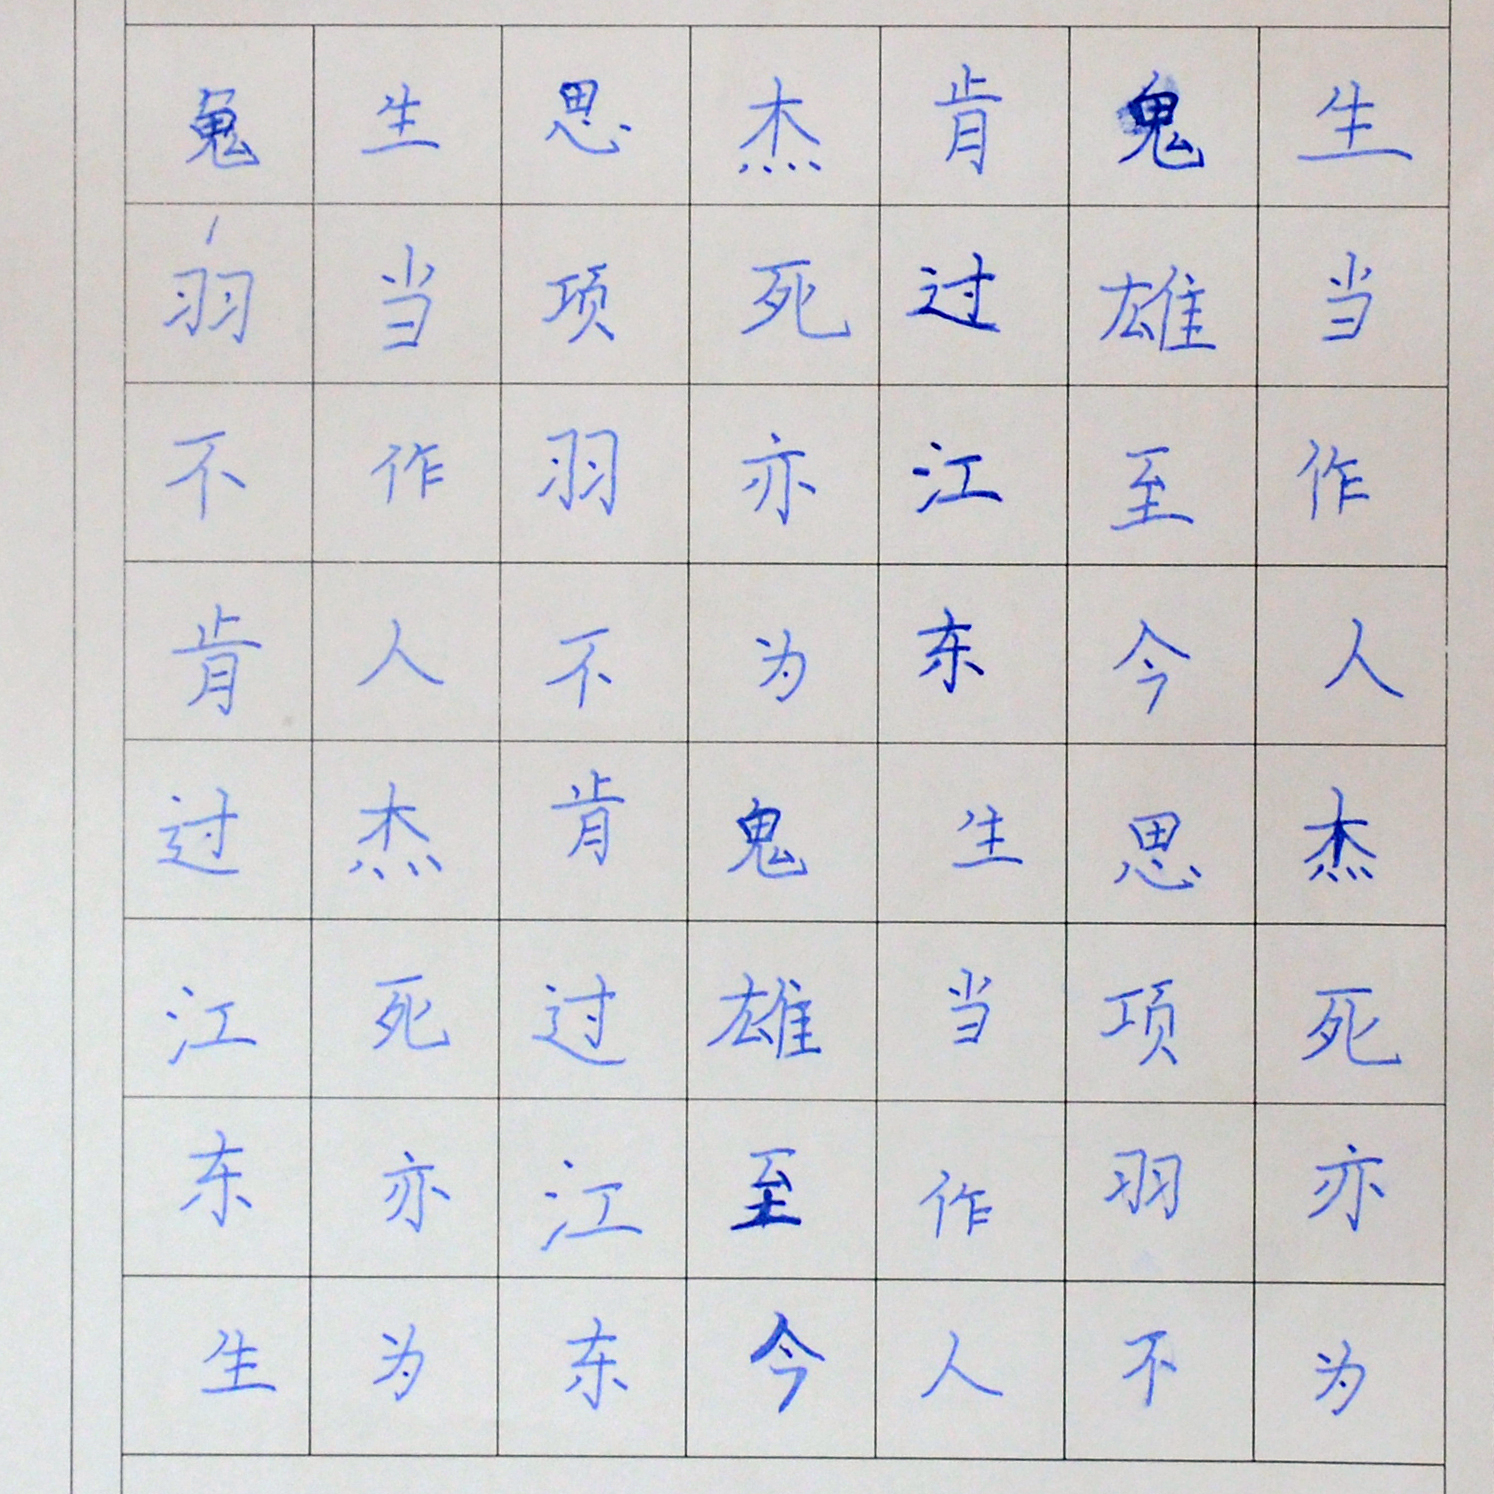 生当作人杰死亦为
鬼雄至今思项羽不
肯过江东生当作人
杰死亦为鬼雄至今
思项羽不肯过江东
生当作人杰死亦为
鬼羽不肯过江东生